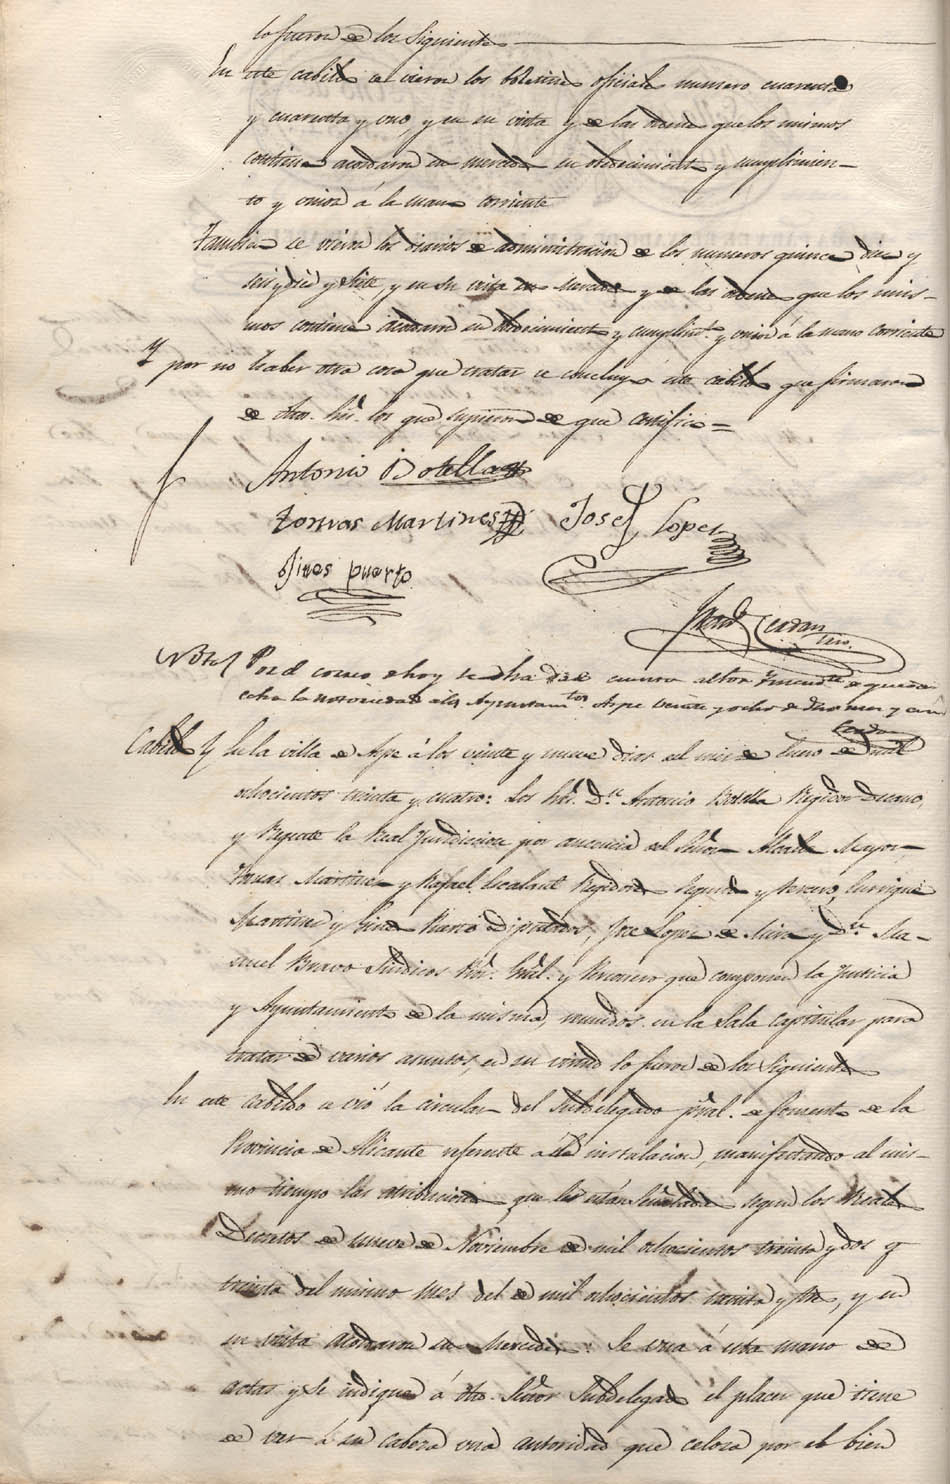 lo fueron de los siguientes
En este cabildo se vieron los boletines oficiales numero cuarenta
y cuarenta y uno, y en su vista y de las ordenes que los mismos
contienen acordaron sus mercedes su obedecimiento y cumplimien-
to y unir á la mano corriente
Tambien se vieron los diarios de administracion de los numeros quince diez y
seis y diez y siete, y en su vista sus Mercedes y de las ordenes que los mis-
mos contienen acordaron su obedecimiento y cumplimt.º y unir á la mano corriente
Y por no haber otra cosa que tratar se concluyó este cabildo que firmaron
de dhos. Sres. los que supieron de que certifico =
Antonio Botella
Tomas Martines Josef Lopez
Jines puerto
Cerdan
Srio.
Nota Por el correo de hoy se ha dado cuenta al Sor. Intendte de quedar
echa la notoriedad á los Ayuntamtos Aspe veinte y ocho de dho mes y año
Cerdan
Cabildo En la villa de Aspe á los veinte y nueve dias del mes de Enero de mil
ochocientos treinta y cuatro: Los Sres. Dn. Antonio Botella Regidor Decano,
y Regente la Real Jurisdiccion por ausencia del Señor Alcalde Mayor,
Tomas Martinez y Rafael Escalant Regidores segundo y tercero, Enrrique
Martinez y Gines Puerto Diputados, Jose Lopez de Mira y Dn. Ma-
nuel Bravo Sindicos Pror. Gral. y Personero que componen la Justicia
y Ayuntamiento de la misma, reunidos en la Sala Capitular para
tratar de varios asuntos, en su virtud lo fueron de los siguientes
En este Cabildo se vió la circular del Subdelegado pral. de fomento de la
Provincia de Alicante referente á la instalacion, manifestando al mis-
mo tiempo las atribuciones que le están señaladas segun los Reales
Decretos de nueve de Noviembre de mil ochocientos treinta y dos y
treinta del mismo mes del de mil ochocientos treinta y tres, y en
su vista acordaron sus Mercedes: Se una á esta mano de
actas y se indique á dho. Señor Subdelegado el placer que tiene
de ver á su cabeza una autoridad que celosa por el bien